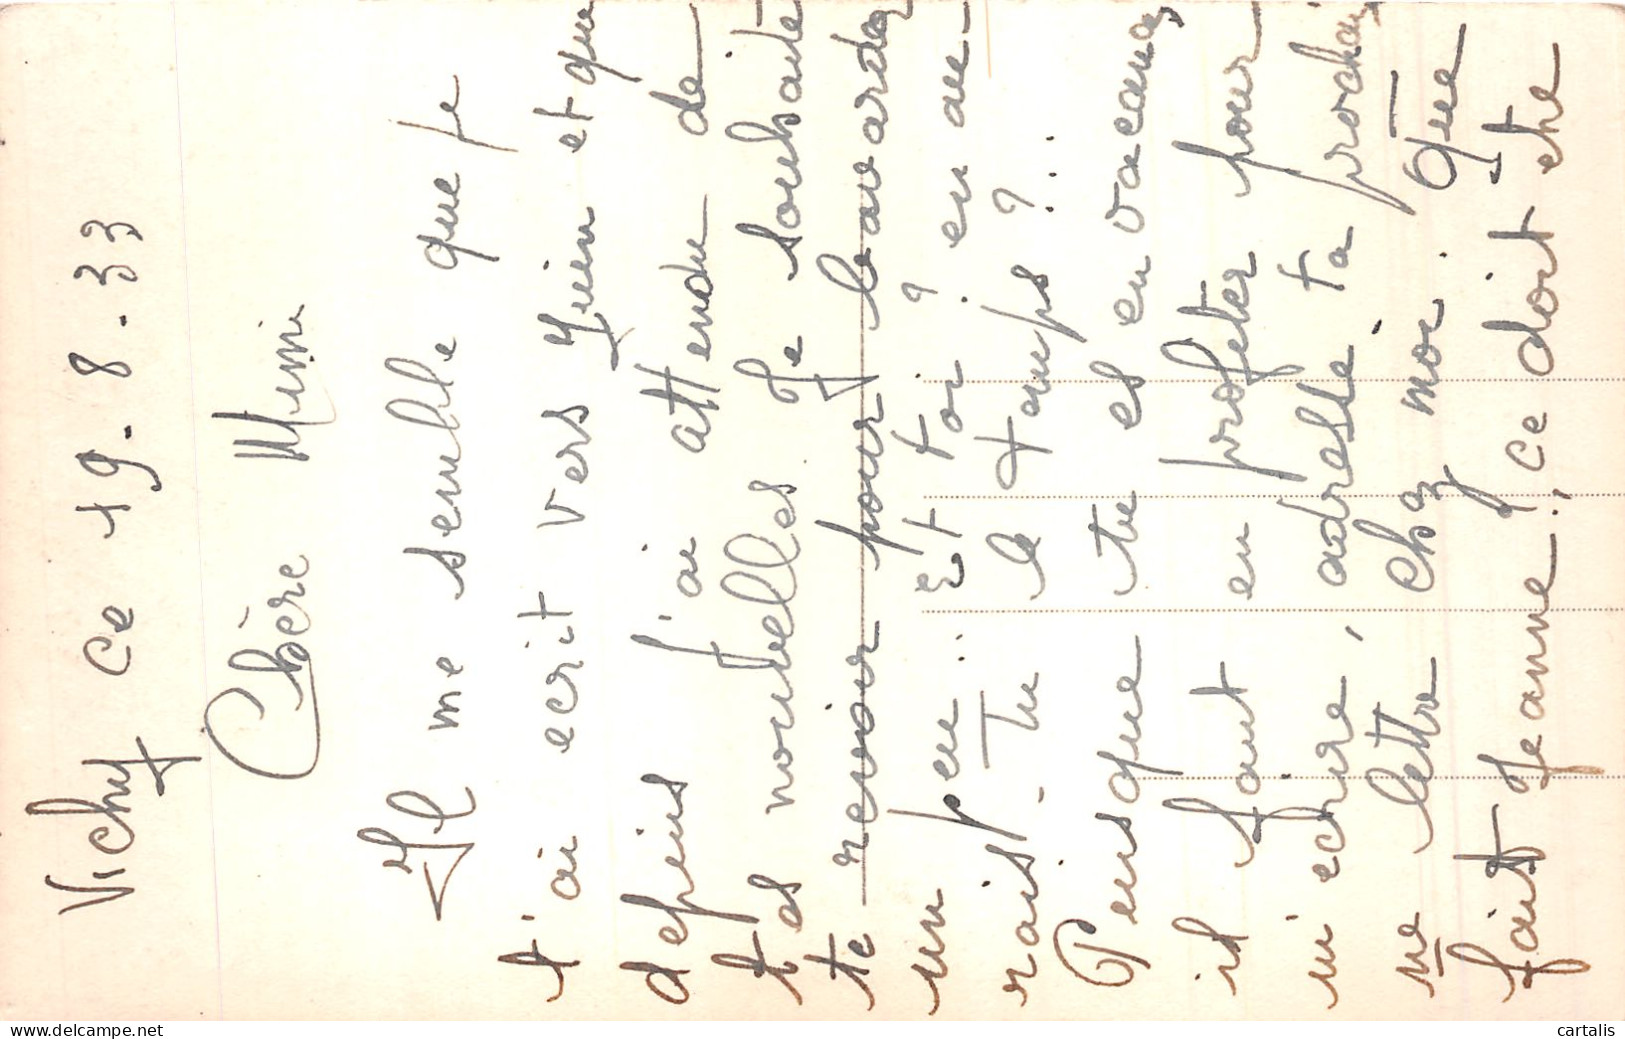 Vichy ce 19.8.33
Chère Mimi
Il me semble que je
t'ai ecrit vers Juin et que
depuis j'ai attendu de
tes nouvelles Je souhaite
te revoir pour bavarder
un peu.. Et toi? en au-
rais-tu le temps?..
Puisque tu es en vacances
il faut en profiter pour
m'ecrire, adresse ta prochai
ne lettre chez moi. Que
fait Jeanne!, ce doit etre
cartalis